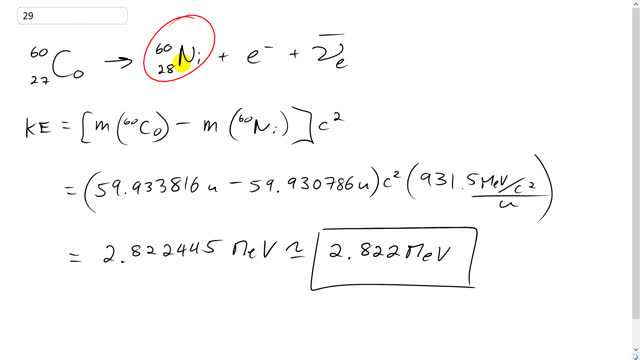 29
⁶⁰₂₇Co → ⁶⁰₂₈Ni + e⁻ + ν̄ₑ
KE = [m(⁶⁰Co) − m(⁶⁰Ni)]c²
= (59.933816u − 59.930786u)c² (931.5 MeV/c² / u)
= 2.822445 MeV ≃ 2.822 MeV